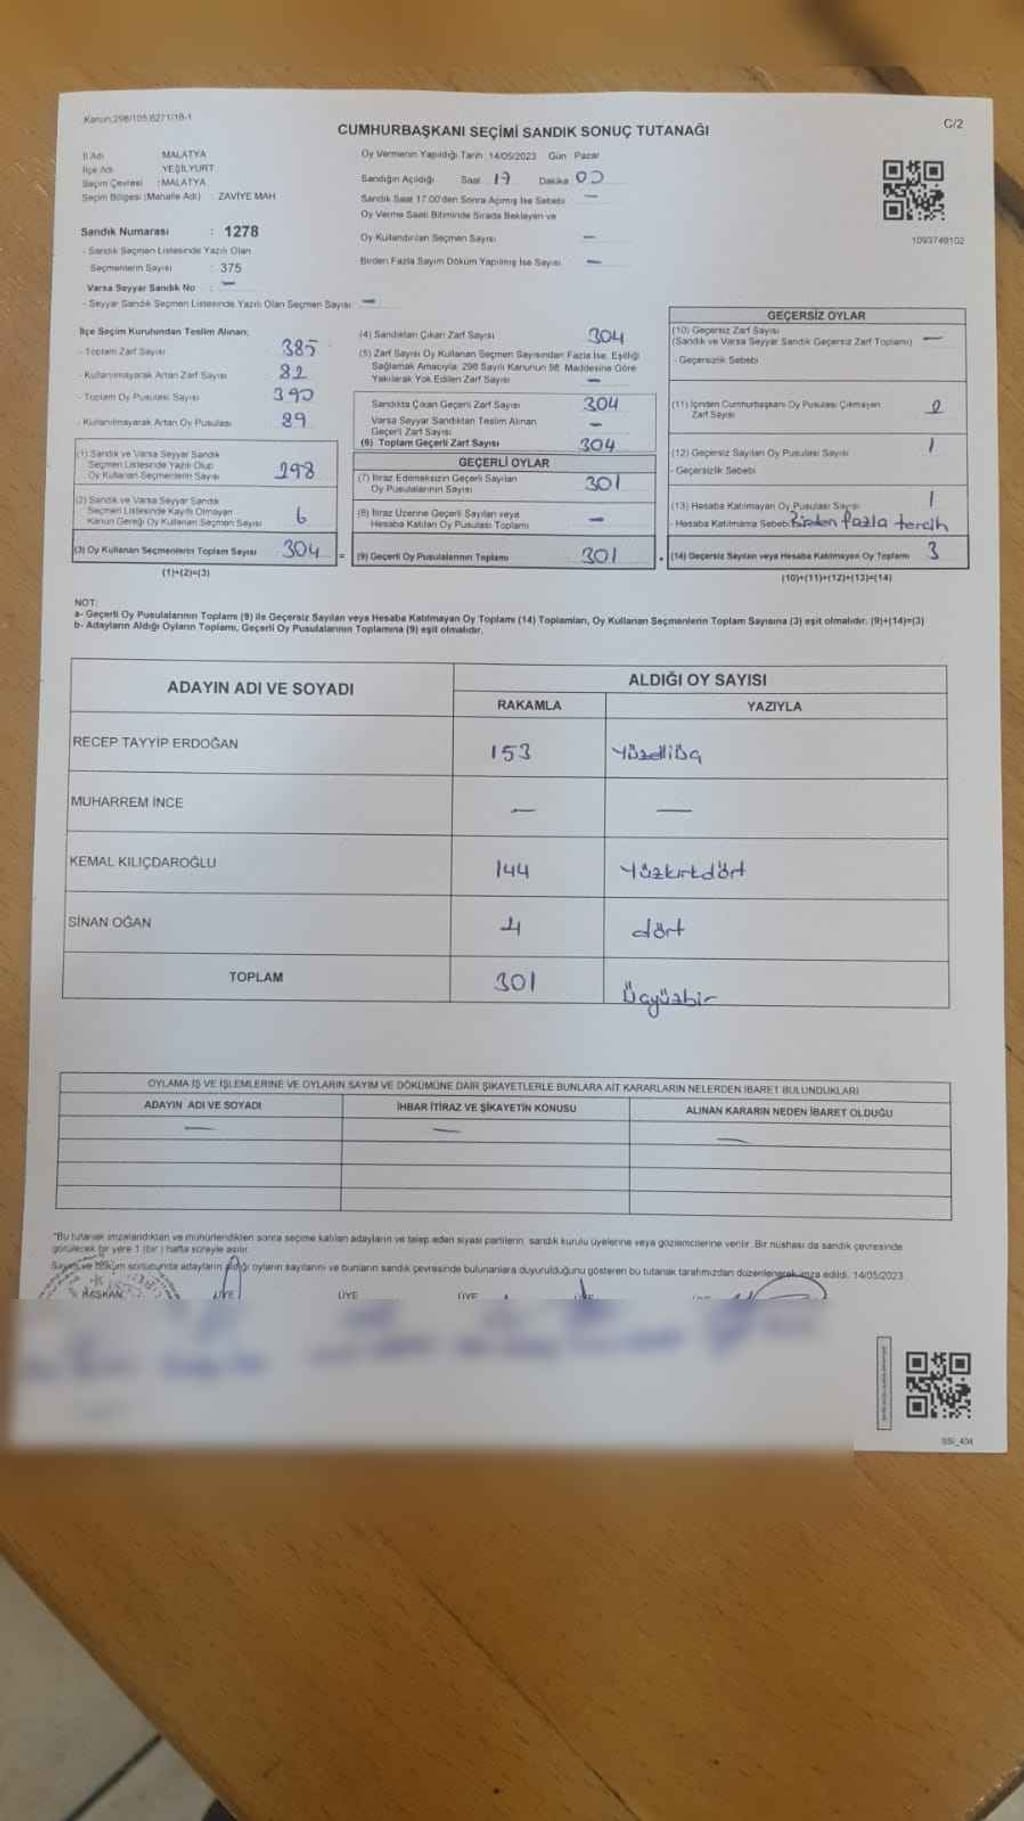 Kanun:298/105,6271/18-1
C/2
CUMHURBAŞKANI SEÇİMİ SANDIK SONUÇ TUTANAĞI
İl Adı MALATYA
İlçe Adı YEŞİLYURT
Seçim Çevresi : MALATYA
Seçim Bölgesi (Mahalle Adı) : ZAVİYE MAH
Sandık Numarası : 1278
- Sandık Seçmen Listesinde Yazılı Olan
Seçmenlerin Sayısı : 375
Varsa Seyyar Sandık No : -
- Seyyar Sandık Seçmen Listesinde Yazılı Olan Seçmen Sayısı : -
Oy Vermenin Yapıldığı Tarih: 14/05/2023 Gün Pazar
Sandığın Açıldığı Saat 17 Dakika 00
Sandık Saat 17.00'den Sonra Açılmış İse Sebebi -
Oy Verme Saati Bitiminde Sırada Bekleyen ve
Oy Kullandırılan Seçmen Sayısı -
Birden Fazla Sayım Döküm Yapılmış İse Sayısı -
1093749102
İlçe Seçim Kurulundan Teslim Alınan;
- Toplam Zarf Sayısı 385
- Kullanılmayarak Artan Zarf Sayısı 82
- Toplam Oy Pusulası Sayısı 390
- Kullanılmayarak Artan Oy Pusulası 89
(1) Sandık ve Varsa Seyyar Sandık
Seçmen Listesinde Yazılı Olup
Oy Kullanan Seçmenlerin Sayısı 298
(2) Sandık ve Varsa Seyyar Sandık
Seçmen Listesinde Kayıtlı Olmayan
Kanun Gereği Oy Kullanan Seçmen Sayısı 6
(3) Oy Kullanan Seçmenlerin Toplam Sayısı 304
(1)+(2)=(3)
(4) Sandıktan Çıkan Zarf Sayısı 304
(5) Zarf Sayısı Oy Kullanan Seçmen Sayısından Fazla İse, Eşitliği
Sağlamak Amacıyla; 298 Sayılı Kanunun 98. Maddesine Göre
Yakılarak Yok Edilen Zarf Sayısı -
Sandıkta Çıkan Geçerli Zarf Sayısı 304
Varsa Seyyar Sandıktan Teslim Alınan
Geçerli Zarf Sayısı -
(6) Toplam Geçerli Zarf Sayısı 304
GEÇERLİ OYLAR
(7) İtiraz Edilmeksizin Geçerli Sayılan
Oy Pusulalarının Sayısı 301
(8) İtiraz Üzerine Geçerli Sayılan veya
Hesaba Katılan Oy Pusulası Toplamı -
= (9) Geçerli Oy Pusulalarının Toplamı 301
GEÇERSİZ OYLAR
(10) Geçersiz Zarf Sayısı
(Sandık ve Varsa Seyyar Sandık Geçersiz Zarf Toplamı) -
- Geçersizlik Sebebi
(11) İçinden Cumhurbaşkanı Oy Pusulası Çıkmayan
Zarf Sayısı 2
(12) Geçersiz Sayılan Oy Pusulası Sayısı 1
- Geçersizlik Sebebi
(13) Hesaba Katılmayan Oy Pusulası Sayısı 1
- Hesaba Katılmama Sebebi Birden fazla tercih
+ (14) Geçersiz Sayılan veya Hesaba Katılmayan Oy Toplamı 3
(10)+(11)+(12)+(13)=(14)
NOT:
a- Geçerli Oy Pusulalarının Toplamı (9) ile Geçersiz Sayılan veya Hesaba Katılmayan Oy Toplamı (14) Toplamları, Oy Kullanan Seçmenlerin Toplam Sayısına (3) eşit olmalıdır. (9)+(14)=(3)
b- Adayların Aldığı Oyların Toplamı, Geçerli Oy Pusulalarının Toplamına (9) eşit olmalıdır.
ADAYIN ADI VE SOYADI
ALDIĞI OY SAYISI
RAKAMLA YAZIYLA
RECEP TAYYİP ERDOĞAN 153 Yüzelliüç
MUHARREM İNCE - -
KEMAL KILIÇDAROĞLU 144 Yüzkırkdört
SİNAN OĞAN 4 dört
TOPLAM 301 Üçyüzbir
OYLAMA İŞ VE İŞLEMLERİNE VE OYLARIN SAYIM VE DÖKÜMÜNE DAİR ŞİKAYETLERLE BUNLARA AİT KARARLARIN NELERDEN İBARET BULUNDUKLARI
ADAYIN ADI VE SOYADI İHBAR İTİRAZ VE ŞİKAYETİN KONUSU ALINAN KARARIN NEDEN İBARET OLDUĞU
- - -
"Bu tutanak imzalandıktan ve mühürlendikten sonra seçime katılan adayların ve talep eden siyasi partilerin, sandık kurulu üyelerine veya gözlemcilerine verilir. Bir nüshası da sandık çevresinde
görülecek bir yere 1 (bir) hafta süreyle asılır.
Sayım ve döküm sonucunda adayların aldığı oyların sayılarını ve bunların sandık çevresinde bulunanlara duyurulduğunu gösteren bu tutanak tarafımızdan düzenlenerek imza edildi. 14/05/2023
BAŞKAN ÜYE ÜYE ÜYE